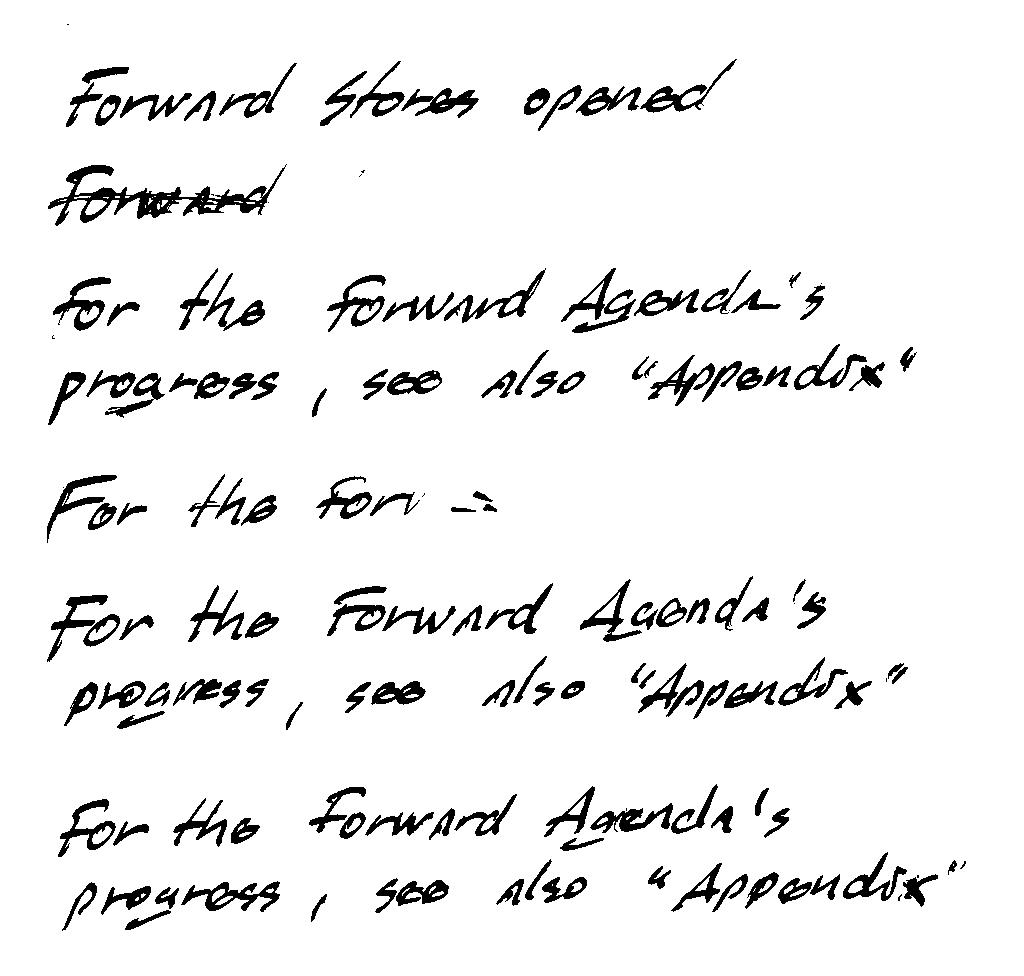 Forward Stores opened
Forward
For the Forward Agenda's
progress, see also "Appendix"
For the Forv
For the Forward Agenda's
progress, see also "Appendix"
For the Forward Agenda's
progress, see also "Appendix"